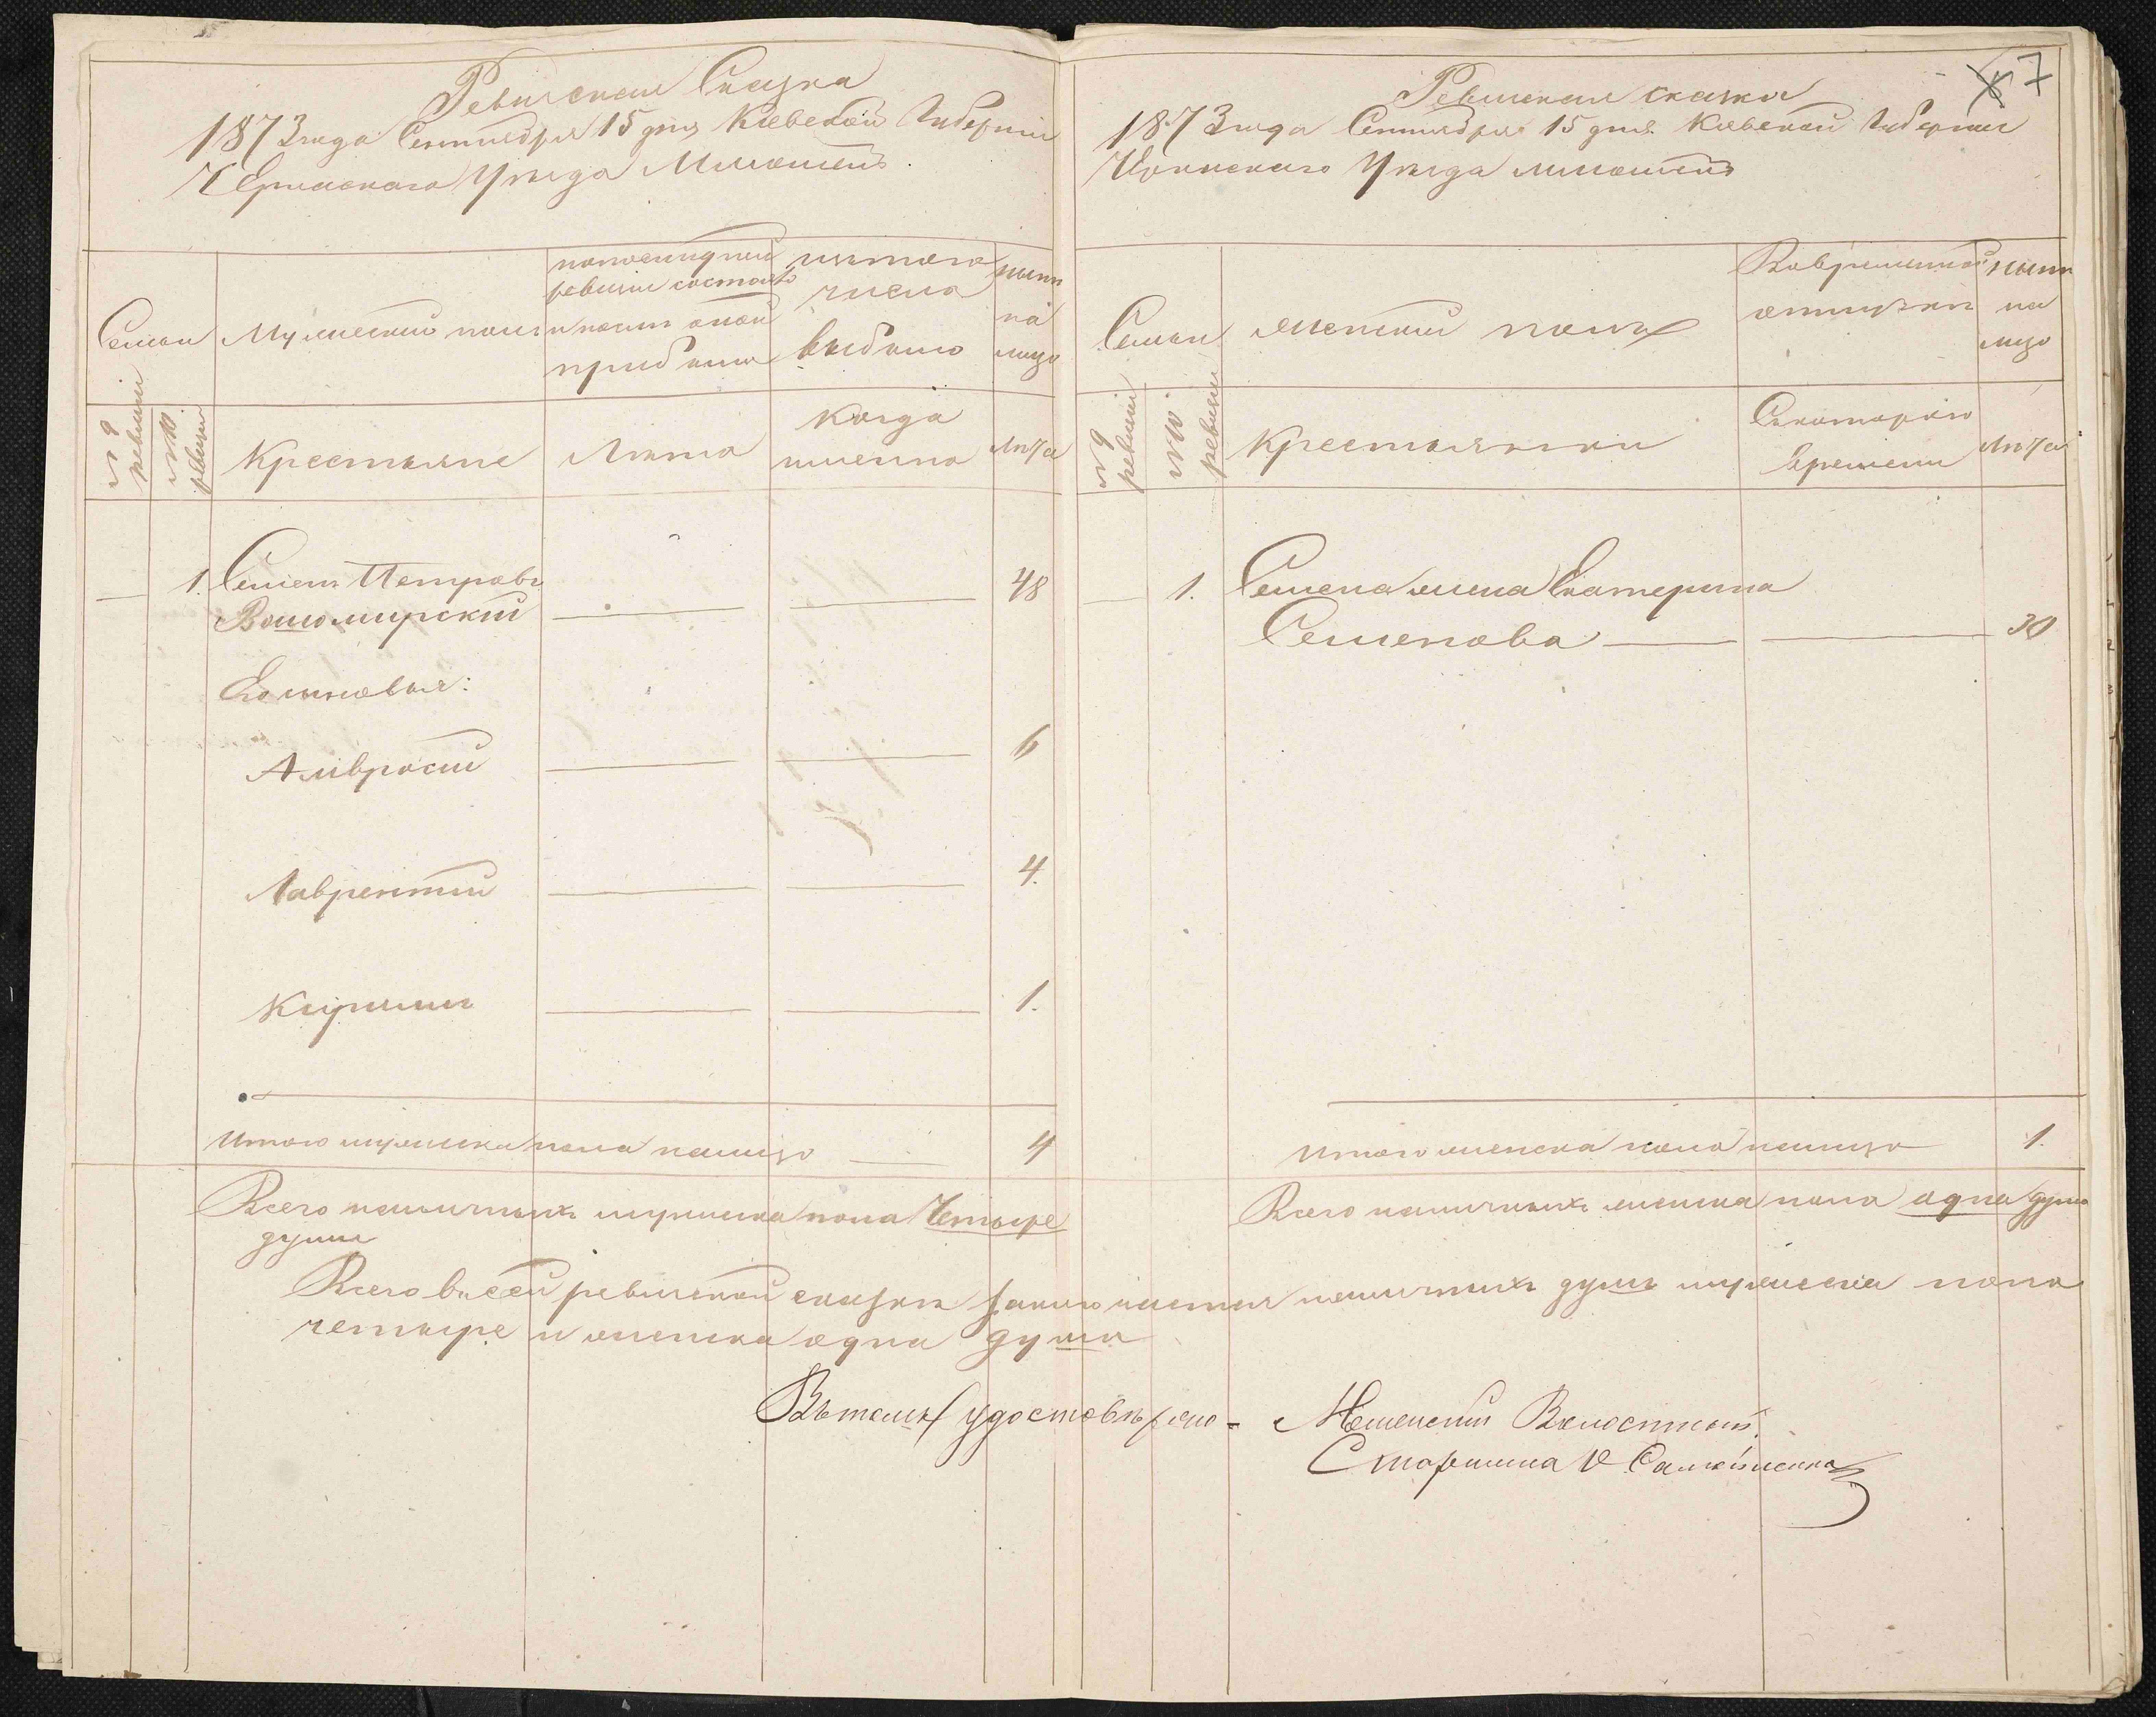 Ревизская Сказка
1873 года Сентября 15 дня Киевской Губернии
Черкаскаго Уезда
Семьи
Мужеский полъ
попоследней
ревизии состояло
и после оной
прибыло
изтого
числа
выбыло
ныне
на
лицо
№ 9 ревизии
№ 10 ревизии
Крестьяне
Лета
когда
именно
Лета
1. Семенъ Петровъ
48
Его сыновья:
Амвросий 6
Лаврентий 4.
Кирилъ 1.
Итого мужеска пола налицо 4
Всего наличныхъ мужеска пола Четыре
души
Ревизская сказка
7
1873 года Сентября 15 дня Киевской Губернии
Уезда
Семьи
женский полъ
Вовременной
отлучки
ныне
на
лицо
№ 9 ревизии
№ 10 ревизии
Крестьянки
Скотораго
времени
Лета
1. Семена жена Екатерина
Семенова 30
Итого женска пола налицо 1.
Всего наличныхъ женска пола одна душа
Всего в сей ревизской сказке заключается наличныхъ душъ мужеска пола
четыре и женска одна душа
Въ томъ удостоверяю - Волостный
Старшина